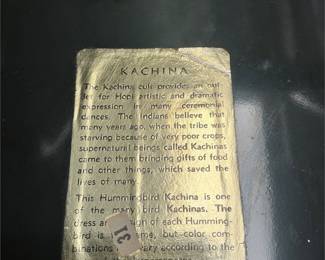 KACHINA
The Kachina cult provides an out-
let for Hopi artistic and dramatic
expression in many ceremonial
dances. The Indians believe that
many years ago, when the tribe was
starving because of very poor crops,
supernatural beings called Kachinas
came to them brinding gifts of food
and other things, which saved the
lives of many.
This Hummingbird Kachina is one
of the many bird Kachinas. The
dress and sign of each Humming-
bird is me, but color com-
binations vary according to the
31